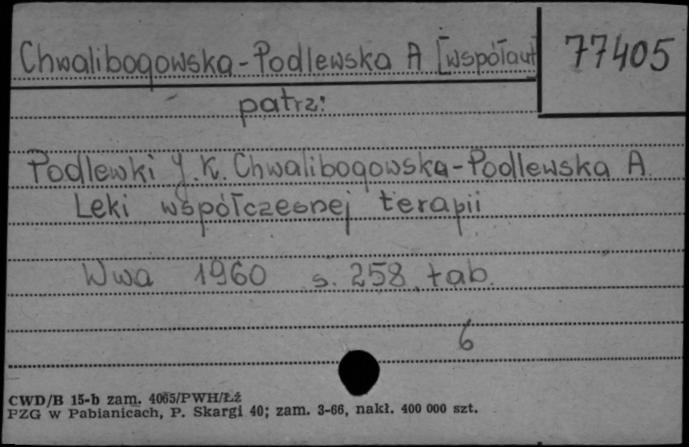 Chwalibogowska-Podlewska A [współaut
77405
patrz:
Podlewki J. K. Chwalibogowska-Podlewska A.
Leki współczesnej terapii
Wwa 1960 s. 258, tab.
6
CWD/B 15-b zam. 4065/PWH/Łź
PZG w Pabianicach, P. Skargi 40; zam. 3-66, nakł. 400 000 szt.